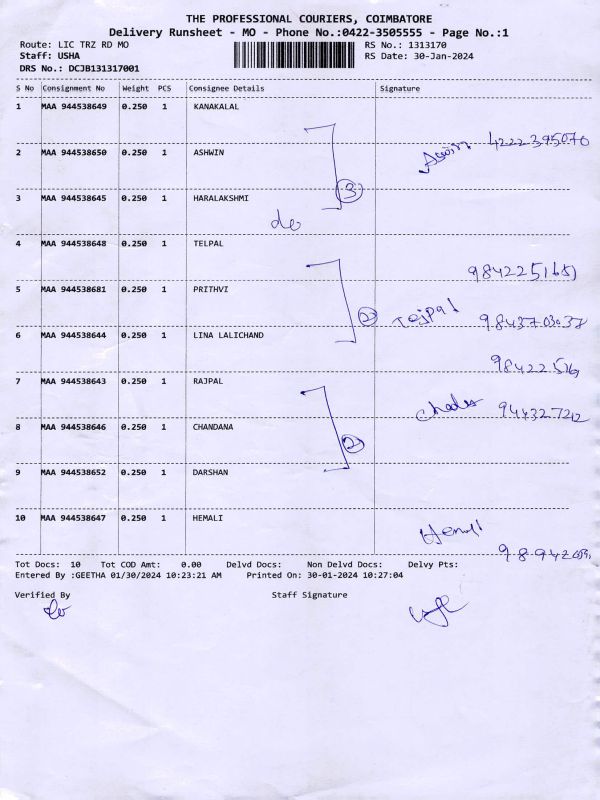 THE PROFESSIONAL COURIERS, COIMBATORE
Delivery Runsheet - MO - Phone No.:0422-3505555 - Page No.:1
Route: LIC TRZ RD MO RS No.: 1313170
Staff: USHA RS Date: 30-Jan-2024
DRS No.: DCJB131317001
S No Consignment No Weight PCS Consignee Details Signature
1 MAA 944538649 0.250 1 KANAKALAL
2 MAA 944538650 0.250 1 ASHWIN Aswin 4222395070
3
3 MAA 944538645 0.250 1 HARALAKSHMI
do
4 MAA 944538648 0.250 1 TELPAL
5 MAA 944538681 0.250 1 PRITHVI
2 Tejpal 9843703037
6 MAA 944538644 0.250 1 LINA LALICHAND
7 MAA 944538643 0.250 1 RAJPAL
8 MAA 944538646 0.250 1 CHANDANA
2
9 MAA 944538652 0.250 1 DARSHAN
10 MAA 944538647 0.250 1 HEMALI
Tot Docs: 10 Tot COD Amt: 0.00 Delvd Docs: Non Delvd Docs: Delvy Pts:
Entered By :GEETHA 01/30/2024 10:23:21 AM Printed On: 30-01-2024 10:27:04
Verified By Staff Signature